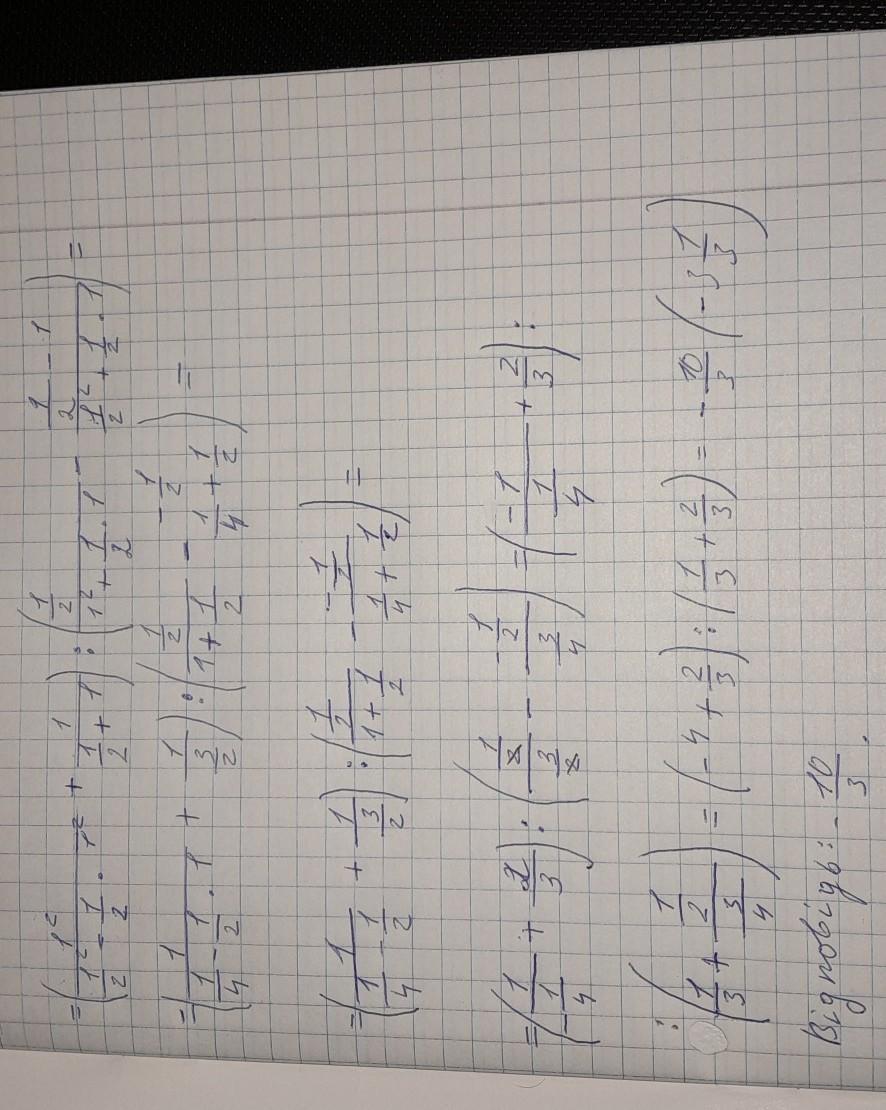 = (1² / (1/2² - 1/2 · 1²) + 1 / (1/2 + 1)) : (1/2 / (1² + 1/2 · 1) - (1/2 - 1) / (1/2² + 1/2 · 1)) =
= (1 / (1/4 - 1/2 · 1) + 1 / (3/2)) : (1/2 / (1 + 1/2) - (-1/2) / (1/4 + 1/2)) =
= (1 / (1/4 - 1/2) + 1 / (3/2)) : (1/2 / (1 + 1/2) - (-1/2) / (1/4 + 1/2)) =
= (1 / (-1/4) + 2/3) : (1/2 / (3/2) - (-1/2) / (3/4)) = (-1 / (1/4) + 2/3) :
: (1/3 + 1/2 / (3/4)) = (-4 + 2/3) : (1/3 + 2/3) = - 10/3 (-3 1/3)
Відповідь: - 10/3 .